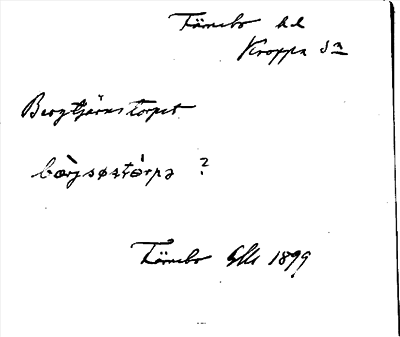 Färnebo hd
Kroppa sn
Bergtjärnstorpet
bærjsøstòrpə ?
Färnebo GM 1899